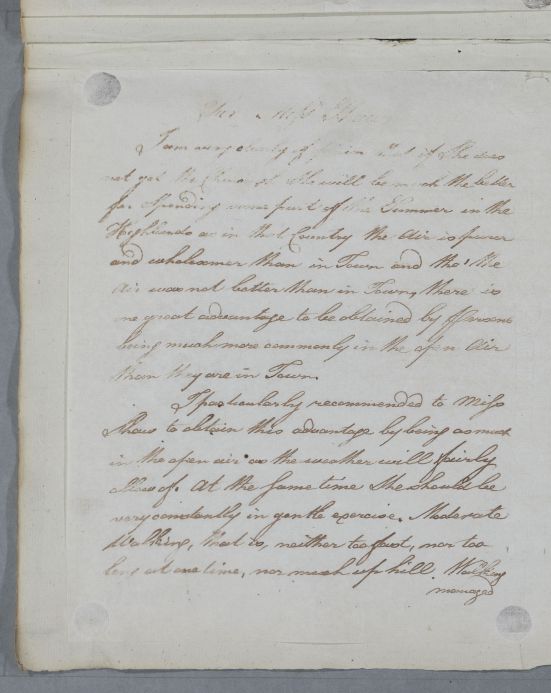 For Miss Shaw
I am very clearly of opinion that if She does
not get the Chincough She will be much the better
for Spending some part of the Summer in the
Highlands as in that Country the Air is purer
and wholesomer than in Town and tho' the
Air was not better than in Town, there is
one great advantage to be obtained by Persons
being much more commonly in the open Air
than they are in Town.
I particularly recommended to Miss
Shaw to obtain this advantage by being as much
in the open air as the weather will fairly
allow of. At the Same time She should be
very constantly in gentle exercise. Moderate
Walking, that is, neither too fast, nor too
long at one time, nor much up hill. Walking
managed